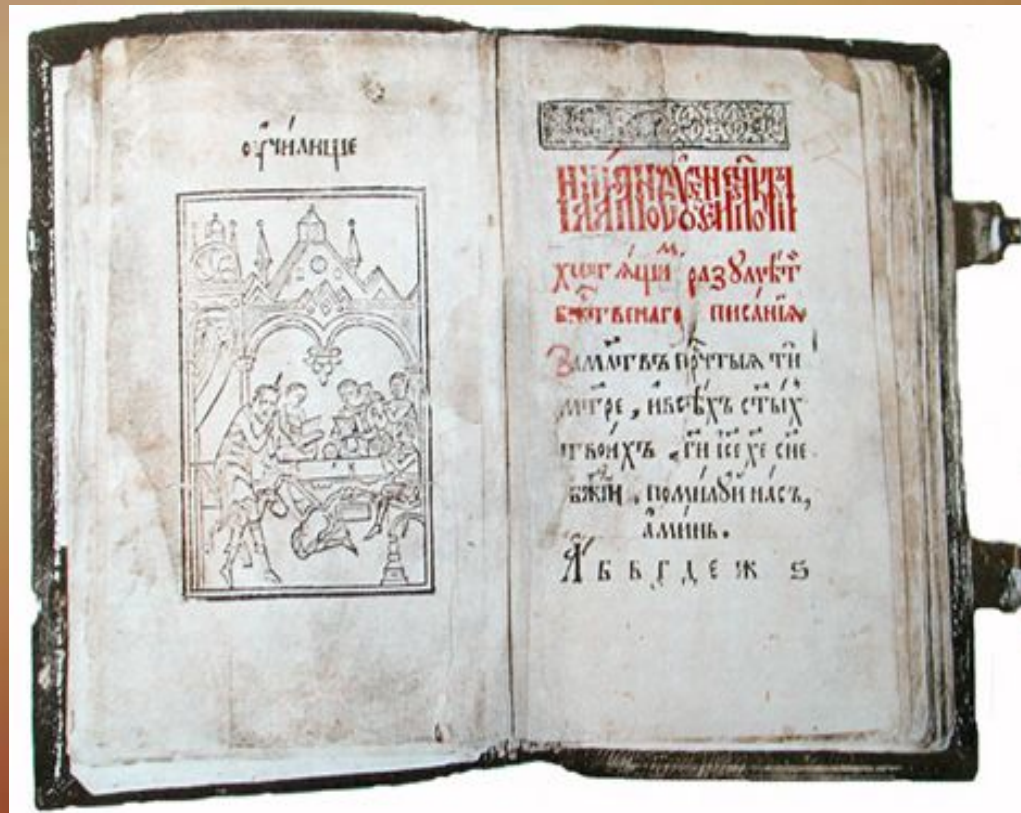 ѹ҆чи́лище
хотѧ́щи̑м разꙋмѣ́ти
бжⷭ҇твенаго писа́нїѧ
За мл҃твъ прⷭ҇чтыѧ ти
мт҃ре, и҆всѣ́хъ ст҃ы́хъ
твои́хъ ги҃ і҆се хе҃ сн҃е
бж҃їй, поми́лꙋй на́съ,
а҆ми́нь.
А҆ Б В Г Д Е Ж Ѕ